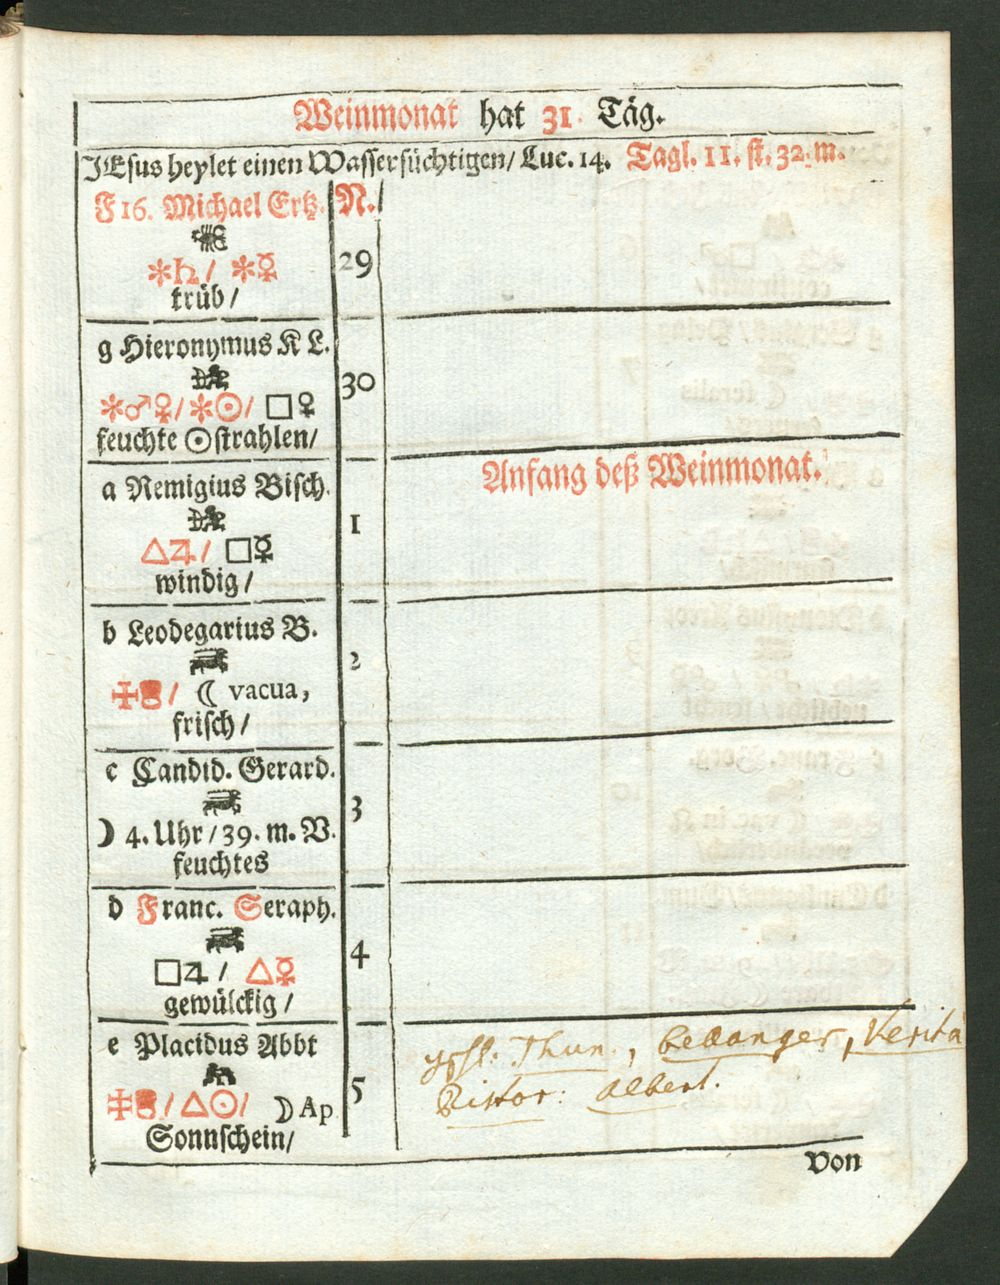 Weinmonat hat 31. Täg.
JEsus heylet einen Wassersüchtigen/ Luc. 14. Tagl. 11. st. 32. m.
F 16. Michael Ertz. N.
✱♄/ ✱☿ 29
trüb/
g Hieronymus K L.
✱♂♀/✱☉/ □♀ 30
feuchte ☉strahlen/
Anfang deß Weinmonat.
a Remigius Bisch.
△♃/ □☿ 1
windig/
b Leodegarius B.
2
☾ vacua,
frisch/
c Candid. Gerard.
3
☽ 4. Uhr/39. m. V.
feuchtes
d Franc. Seraph.
□♃/ △☿ 4
gewülckig/
e Placidus Abbt
△☉/ ☽Ap 5
Sonnschein/
Thun.,
Albert.
Von